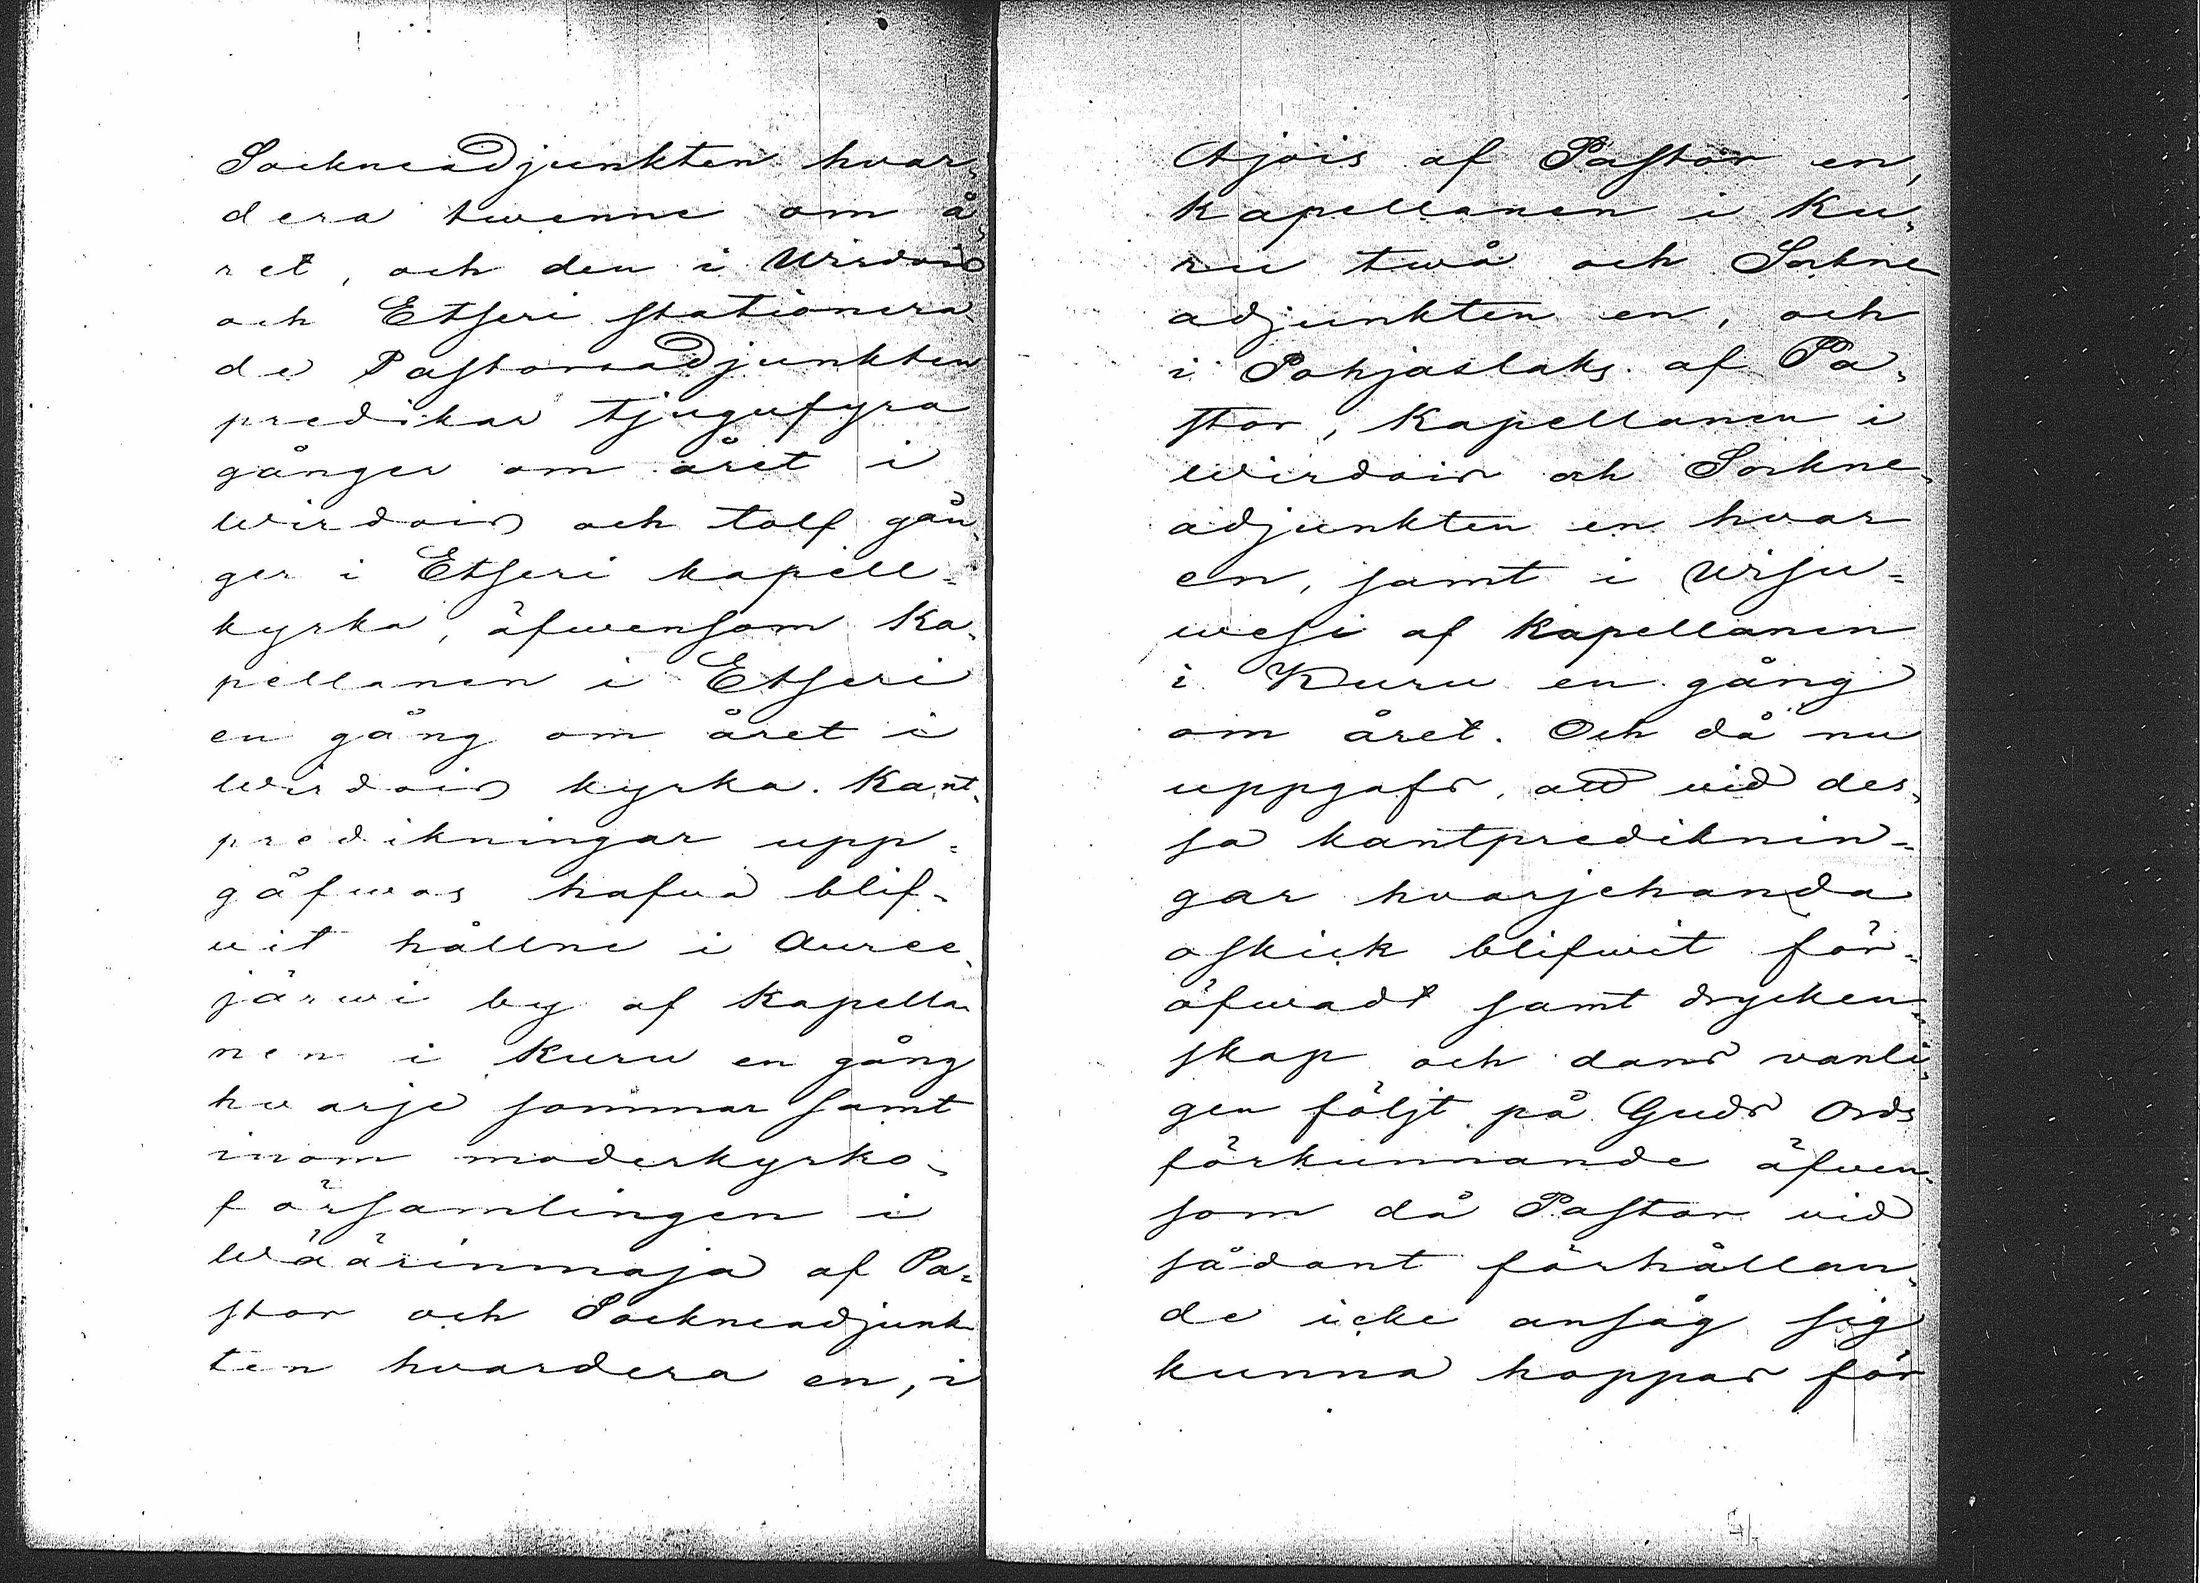 Sockneadjunkten hvar-
dera twenne om å-
ret, och den i Wirdois
och Etseri stationera
de Pastorsadjunkten
predikar tjugufyra
gånger om året i
Wirdois och tolf gån-
ger i Etseri kapell-
kyrka, äfwensom Ka-
pellanen i Etseri
en gång om året i
Wirdois kyrka. Kant-
predikningar upp-
gåfwos hafva blif-
vit hållne i Auree-
järwi by af Kapella-
nen i Kuru en gång
hvarje sommar samt
inom moderkyrko-
församlingen i
Wäärinmaja af Pa-
stor och Sockneadjunk
ten hvardera en, i
af Pastor en,
kapellanen i Ku-
ru twå och Sockne
adjunkten en, och
i Pohjaslaks af Pa-
stor, Kapellanen i
Wirdois och Sockne-
adjunkten en hvar
en, samt i Wisu-
wesi af Kapellanen
i Kuru en gång
om året. Och då nu
uppgafs, att vid des-
sa kantprediknin-
gar hvarjehanda
oskick blifwit för-
öfwadt samt drycken-
skap och dans vanli-
gen följt på Guds Ords
förkunnande äfven-
som då Pastor vid
sådant förhållan-
de icke ansåg sig
kunna hoppas för